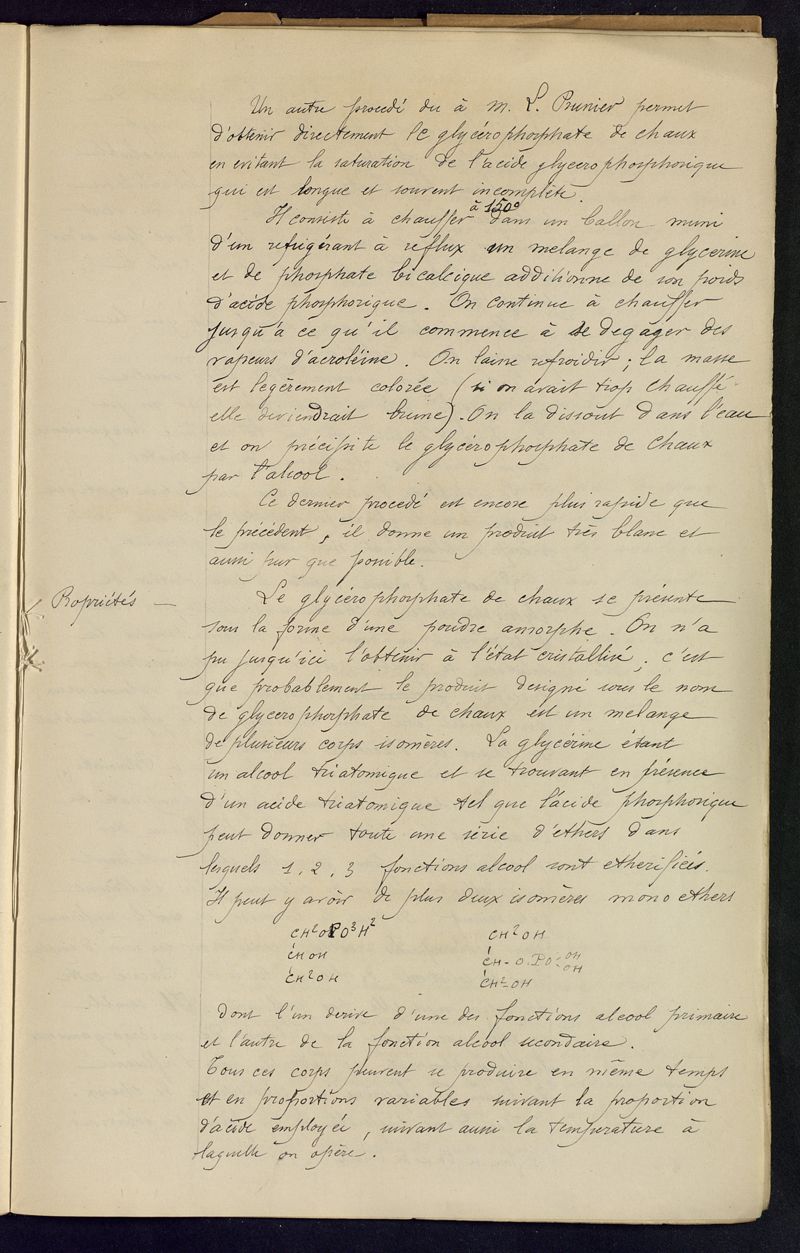 Un autre procedé du à M. L. Prunier permet
d'obtenir directement le glycérophosphate de chaux
en evitant la saturation de l'acide glycerophosphorique
qui est longue et souvent incomplète.
à 150°
Il consiste à chauffer dans un ballon muni
d'un refrigérant à reflux un melange de glycerine
et de phosphate bicalcique additionne de son poids
d'acide phosphorique. On continue à chauffer
jusqu'à ce qu'il commence à se degager des
vapeurs d'acroléine. On laisse refroidir ; la masse
est legèrement colorée (si on avait trop chauffé
elle deviendrait brune). On la dissout dans l'eau
et on précipite le glycérophosphate de chaux
par l'alcool.
Ce dernier procedé est encore plus rapide que
le précédent, il donne un produit très blanc et
aussi pur que possible.
Propriétés — Le glycérophosphate de chaux se présente
sous la forme d'une poudre amorphe. On n'a
pu jusqu'ici l'obtenir à l'état cristallisé, c'est
que probablement le produit designé sous le nom
de glycerophosphate de chaux est un melange
de plusieurs corps isomères. La glycérine étant
un alcool triatomique et se trouvant en présence
d'un acide triatomique tel que l'acide phosphorique
peut donner toute une série d'éthers dans
lesquels 1, 2, 3 fonctions alcool sont etherifiées.
Il peut y avoir de plus deux isomères mono ethers
CH²OPO³H² CH²OH
CHOH CH-O.PO<OH OH
CH²OH CH²-OH
dont l'un derive d'une des fonctions alcool primaire
et l'autre de la fonction alcool secondaire.
Tous ces corps peuvent se produire en même temps
et en proportions variables suivant la proportion
d'acide employée, suivant aussi la temperature à
laquelle on opère.